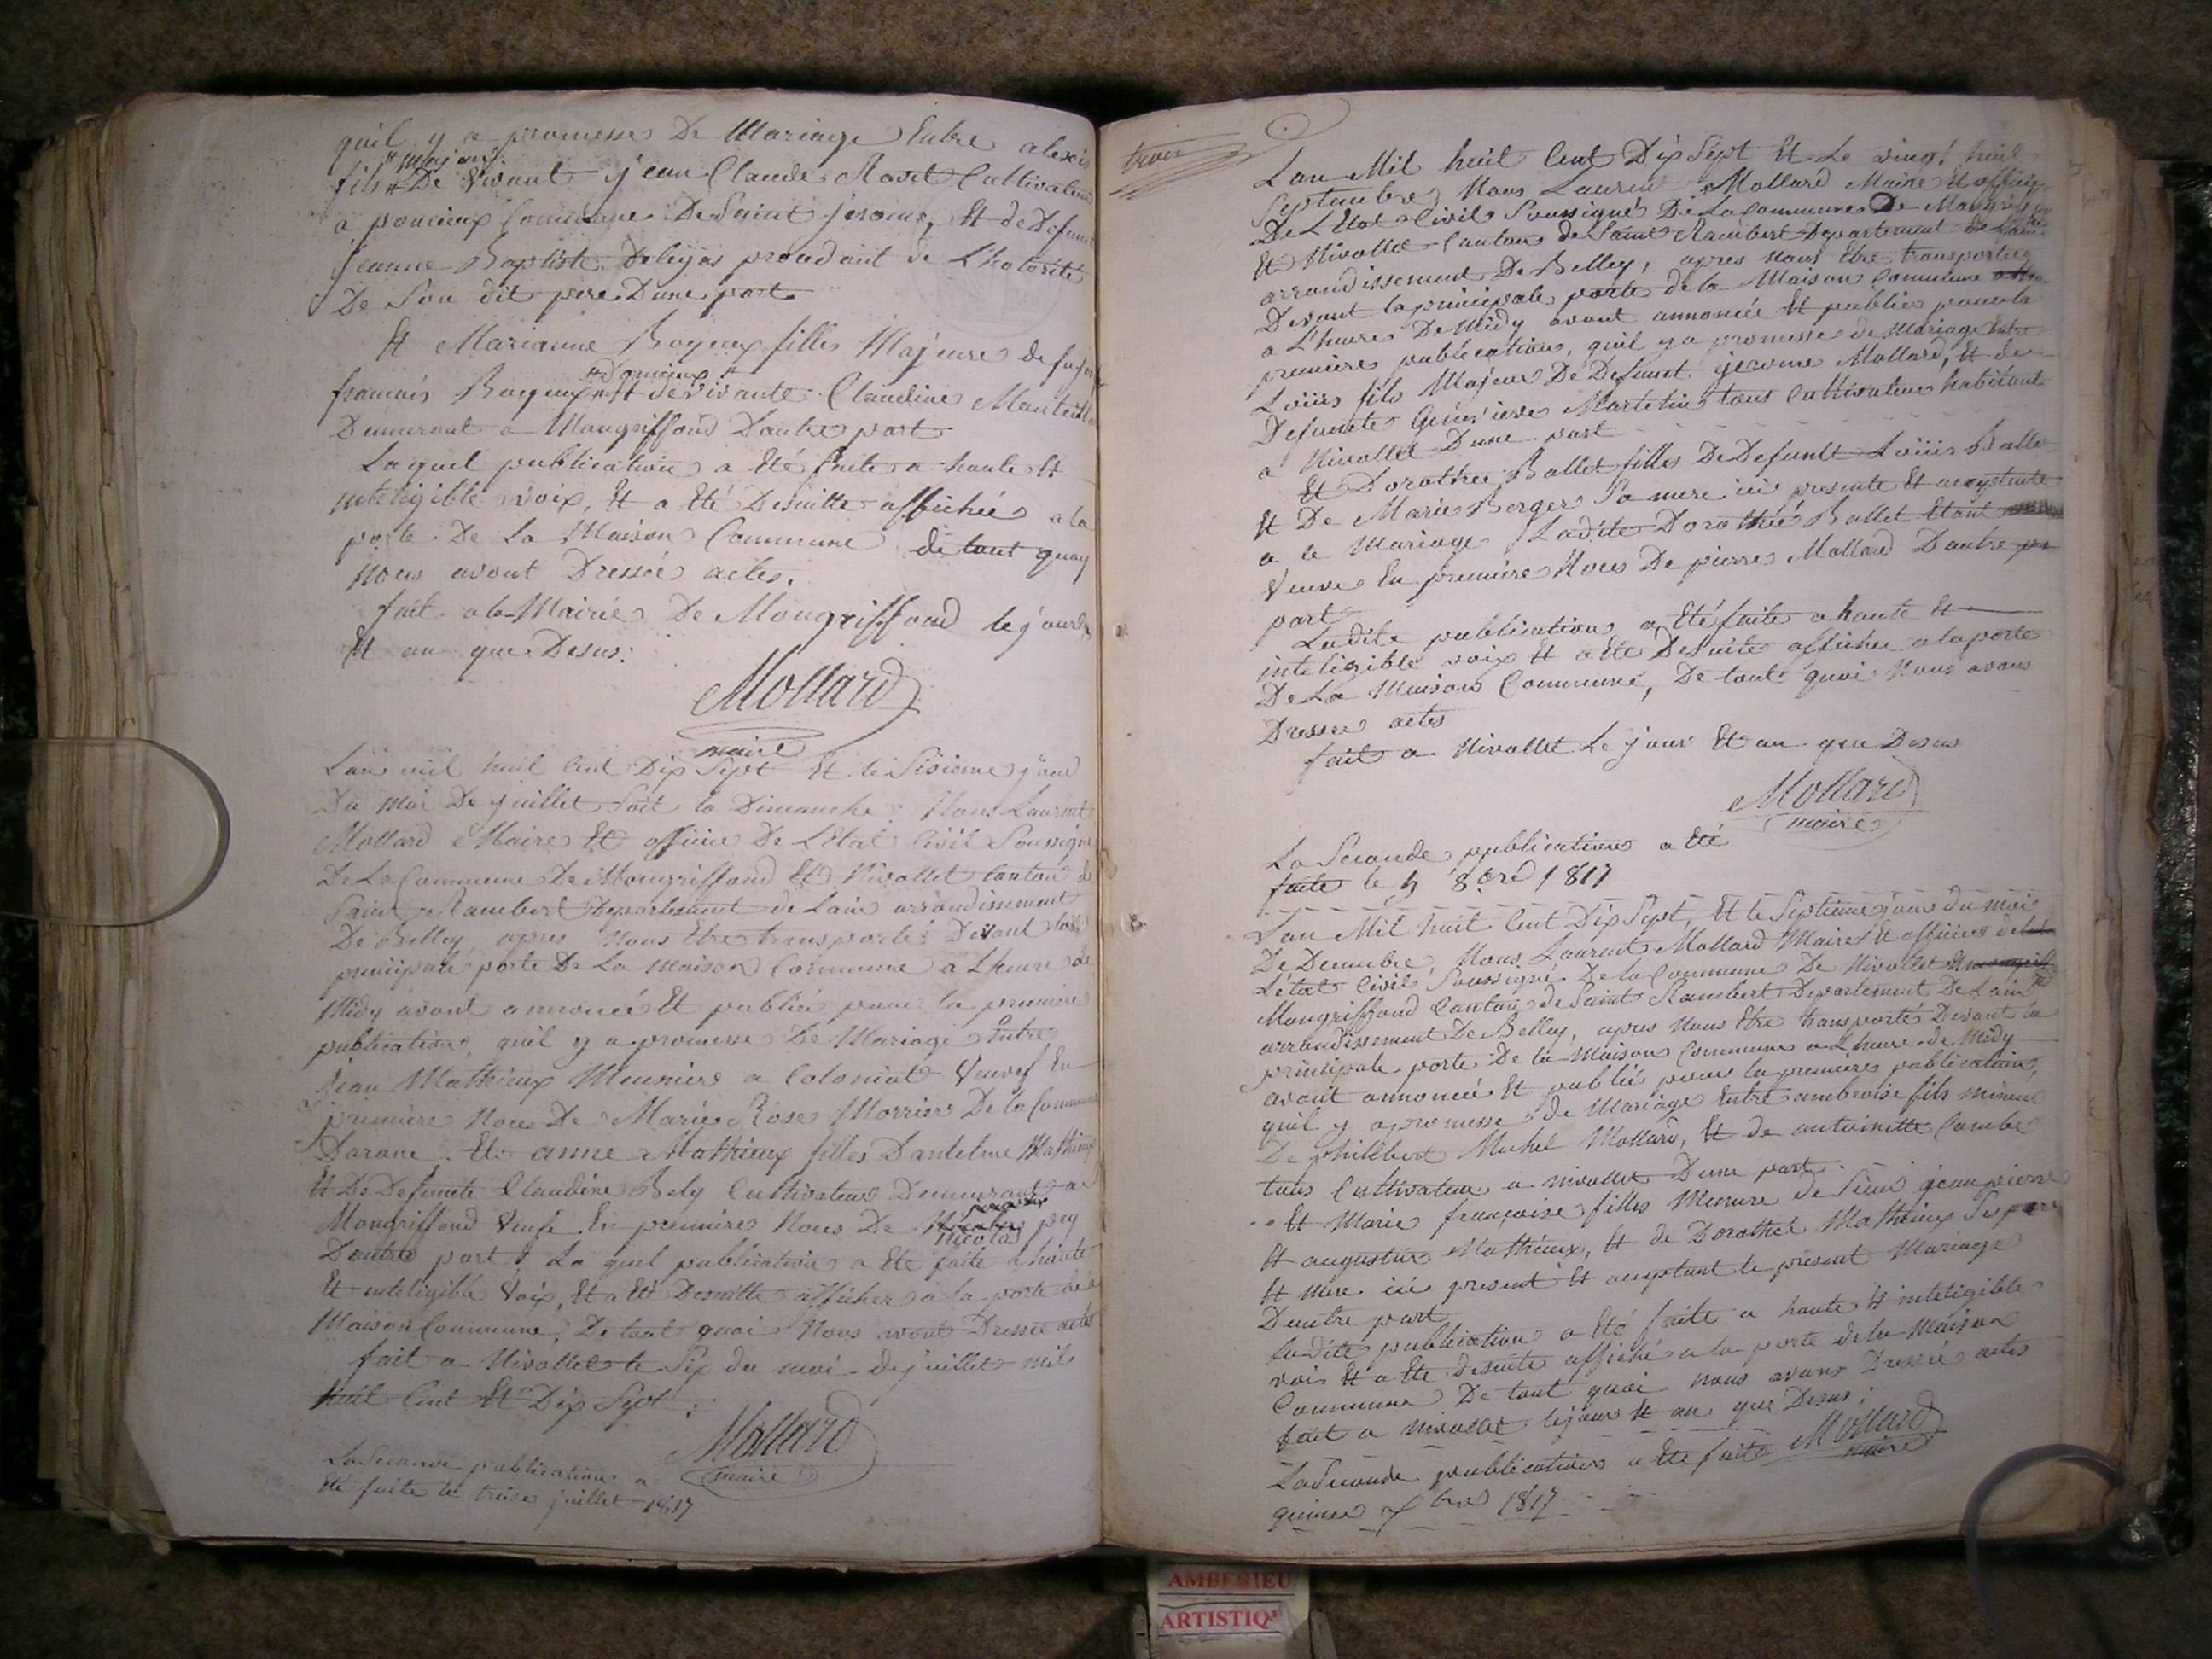 quil y a promesse De Mariage Entre alexis
# majeur
fils # De vivant jean Claude Ravet Cultivateur
a poncieux Commune De Saint jerome, Et de Defunte
jeanne Baptiste procédant de Lhotorité
De Son dit pere Dune part
Et Marianne Boyeux filles Majeure de
francois # Et de vivante Claudine
Demeurant a Mongriffond Dautre part
Laquel publication a Eté faite a haute Et
inteligible voix, Et a Eté Desuitte affichée a la
porte De La Maison Commune de tout quoy
Nous avont Dressée actes.
fait a la Mairie De Mongriffond le jour
Et an que Desus:
Mollard
maire
Lan mil huit Cent Dix Sept Et le Sisieme jour
Du moi De juillet Soit la Dimanche Nous Laurent
Mollard Maire Et officier De Letat Civil Soussigné
De La Commune De Mongriffond Et Nivollet Canton de
Saint Rambert Departement de Lain arrondissement
De Belley, apres Nous Etre transporté Devant la
principale porte De La maison Commune a Lheure de
Midy avont annoncé Et publiée pour la premiere
publication, quil y a promesse De Mariage Entre
jean Mathieux Meunier a Colonient Veuvef En
premiere Noces De Marie Rose Morrier De la Commune
Darane. Et anne Mathieux filles Dantelme Mathieux
Et De Defuncte Claudine Bely Cultivateur Demeurant a
Mongriffond Veufe En premiere Noces De
nicolas pey
Dautre part La quel publication a Eté faite a haute
Et inteligible Voix, Et a Eté Desuitte afficher a la porte de la
Maison Commune, De tout quoi Nous avont Dressée actes
fait a Nivollet le Six du moi de juillet mil
huit Cent Et Dix Sept:
Mollard
maire
La Seconde publication a
Eté faite le treise juillet 1817
trois
Lan Mil huit Cent Dix Sept Et Le vingt huit
Septembre Nous Laurent Mollard Maire Et officier
De LEtat Civil Soussigné De La Commune De
Et Nivollet Canton de Saint Rambert Departement de Lain
arrondissement De Belley, apres nous Etre transportée
Devant la principale porte de la Maison Commune
a Lheure De Midy avont annoncée Et publiée pour la
premiere publication, quil y a promesse de Mariage Entre
Loüis fils Majeur De Defunct jerome Mollard, Et de
Defuncte Genevieve Martelin tous Cultivateur habitant
a Nivollet Dune part
Et Dorothée Ballet filles De Defunct Loüis Ballet
Et De Marie Berger Sa mere ici presente Et
a le Mariage Ladite Dorothée Ballet Etant
Veuve En premiere Noces De pierre Mollard Dautre
part
Ladite publication a Eté faite a haute Et
inteligible voix Et a Eté Desuite affichée a la porte
De La Maison Commune, De tout quoi Nous avons
Dressée actes
fait a Nivollet Le jour Et an que Desus
Mollard
maire
La Seconde publication a Eté
faite le 5 8bre 1817
Lan Mil huit Cent Dix Sept, Et le Septieme jour du moi
De Decembre, Nous Laurent Mollard Maire Et officier
Létat Civil Soussigné De la Commune De Nivollet
Mongriffond Canton de Saint Rambert Departement De Lain
arrondissement De Belley, apres Nous Etre transporté Devant la
principale porte De la Maison Commune a Lheure de Midy
avont annoncée Et publiée pour la premiere publication,
quil y a promesse de Mariage Entre ambroise fils mineur
De philibert Michel Mollard, Et de antoinette Combe
tous Cultivateur a nivollet Dune part.
Et Marie françoise filles Meneure de jean pierre
Et augustin Mathieux, Et de Dorothée Mathieux Ses pere
Et mere ici present Et le présent Mariage
Dautre part
Ladite publication a Eté faite a haute Et inteligible
voix Et a Eté desuite affiché a la porte de la Maison
Commune De tout quoi nous avons Dressée actes
fait a nivollet le jour Et an que Desus:
Mollard
maire
La Seconde publication a Eté faite
quinse bre 1817
AMBERIEU
ARTISTIQ